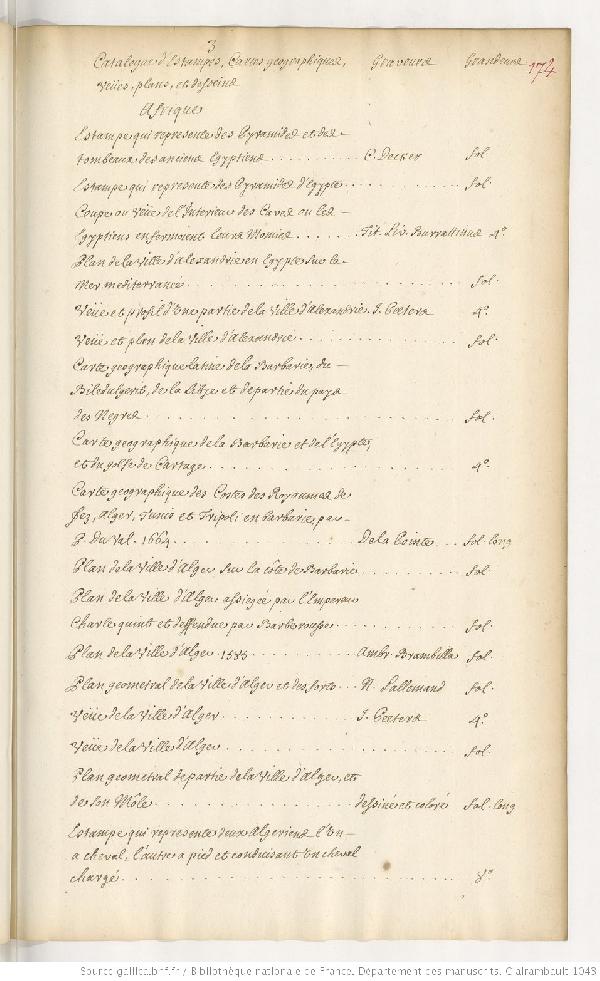 3
Catalogue d'Estampes, Cartes geographiques, Graveurs Grandeurs 174
Veües, plans, et desseins
Afrique
Estampe qui represente des Pyramides et des
tombeaux des anciens Egyptiens . . . . . . . . . C. Decker fol.
Estampe qui represente des Pyramides d'Egypte . . . . . . . . . fol.
Coupe ou Veüe de l'Interieur des Caves ou les
Egyptiens enfermoient leurs Momies . . . . . . Tit. Liv. Burrattinus 4°.
Plan de la Ville d'Alexandrie en Egypte sur la
Mer mediterranée . . . . . . . . . fol.
Veüe et profil d'Une partie de la Ville d'Alexandrie . J. Peeters 4°.
Veüe et plan de la Ville d'Alexandrie . . . . . . . . . fol.
Carte geographique latine de la Barbarie, du
Biledulgerid, de la Libye et de partie du pays
des Negres . . . . . . . . . fol.
Carte geographique de la Barbarie et de l'Egypte,
et du golfe de Cartage . . . . . . . . . 4°.
Carte geographique des Costes des Royaumes de
Fez, Alger, Tunis et Tripoli en barbarie, par
P. Du Val. 1664 . . . . . . . . . De la Pointe . . . fol. long
Plan de la Ville d'Alger sur la côte de Barbarie . . . . . . . . . fol
Plan de la Ville d'Alger assiegée par l'Empereur
Charle quint et deffendue par Barberousse . . . . . . . . . fol.
Plan de la Ville d'Alger 1585 . . . . . . . . . Ambr. Brambilla fol.
Plan geometral de la Ville d'Alger et des forts . . N. Lallemand fol.
Veüe de la Ville d'Alger . . . . . . . . . J. Peeters 4°.
Veüe de la Ville d'Alger . . . . . . . . . fol.
Plan geometral de partie de la Ville d'Alger, et
de son Môle . . . . . . . . . dessiné et coloré fol. long
Estampe qui represente deux Algeriens l'Un
a cheval, l'autre a pied et conduisant Un cheval
chargé . . . . . . . . . 8°.
Source gallica.bnf.fr / Bibliothèque nationale de France. Département des manuscrits. Clairambault 1043